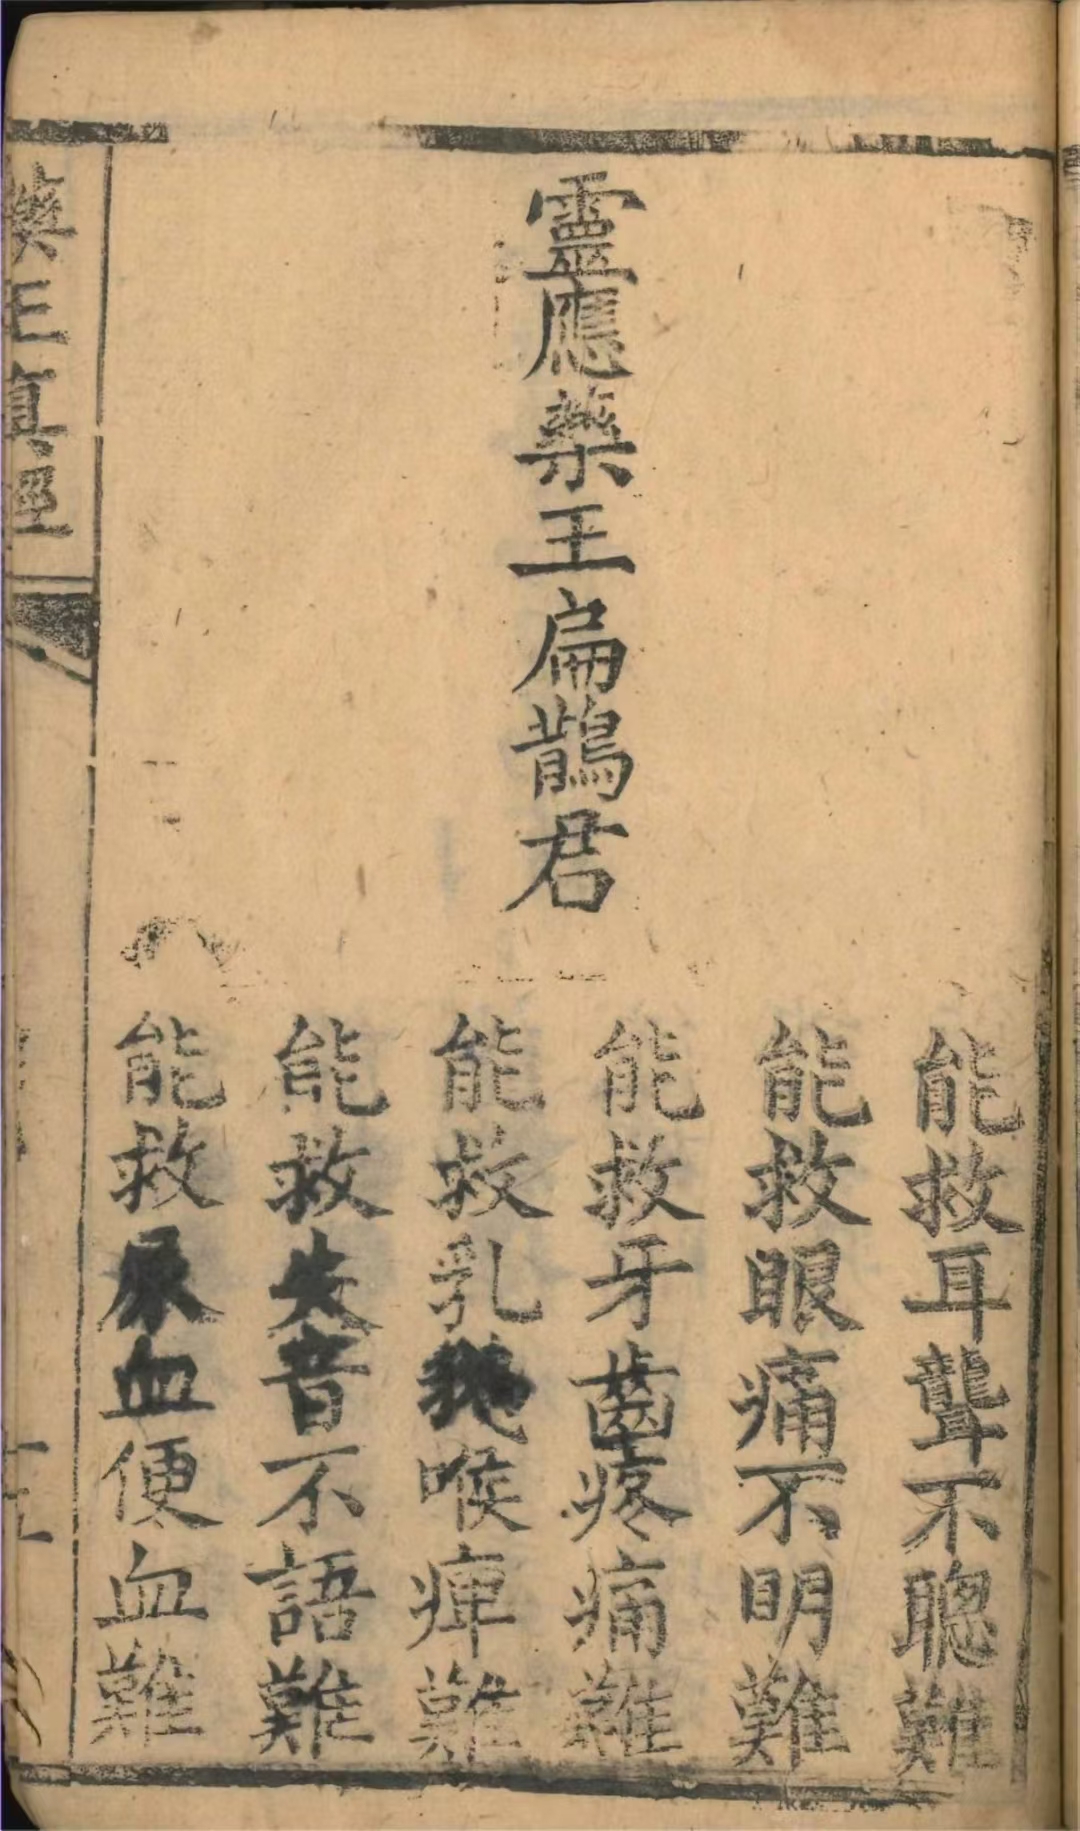 靈應藥王扁鵲君
能救耳聾不聰難
能救眼痛不明難
能救牙齒疼痛難
能救乳喉痺難
能救失音不語難
能救尿血便血難
藥王真經